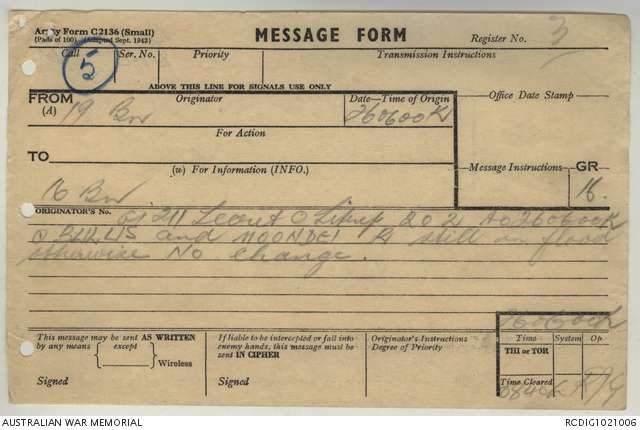 Army Form C2136 (Small)
(Pads of 100) (Adapted Sept. 1943)
MESSAGE FORM
Register No. 3
Call
Ser. No.
Priority
Transmission Instructions
5
ABOVE THIS LINE FOR SIGNALS USE ONLY
FROM
(A)
Originator
19
Date—Time of Origin
260600K
Office Date Stamp
For Action
TO
(w) For Information (INFO.)
Message Instructions
GR
16
18
ORIGINATOR'S No.
211
202 260600K
and still in flood
otherwise No Change.
260600K
This message may be sent AS WRITTEN
by any means except
Wireless
Signed
If liable to be intercepted or fall into
enemy hands, this message must be
sent IN CIPHER
Signed
Originator's Instructions
Degree of Priority
Time
System
Op
THI or TOR
Time Cleared
AUSTRALIAN WAR MEMORIAL
RCDIG1021006